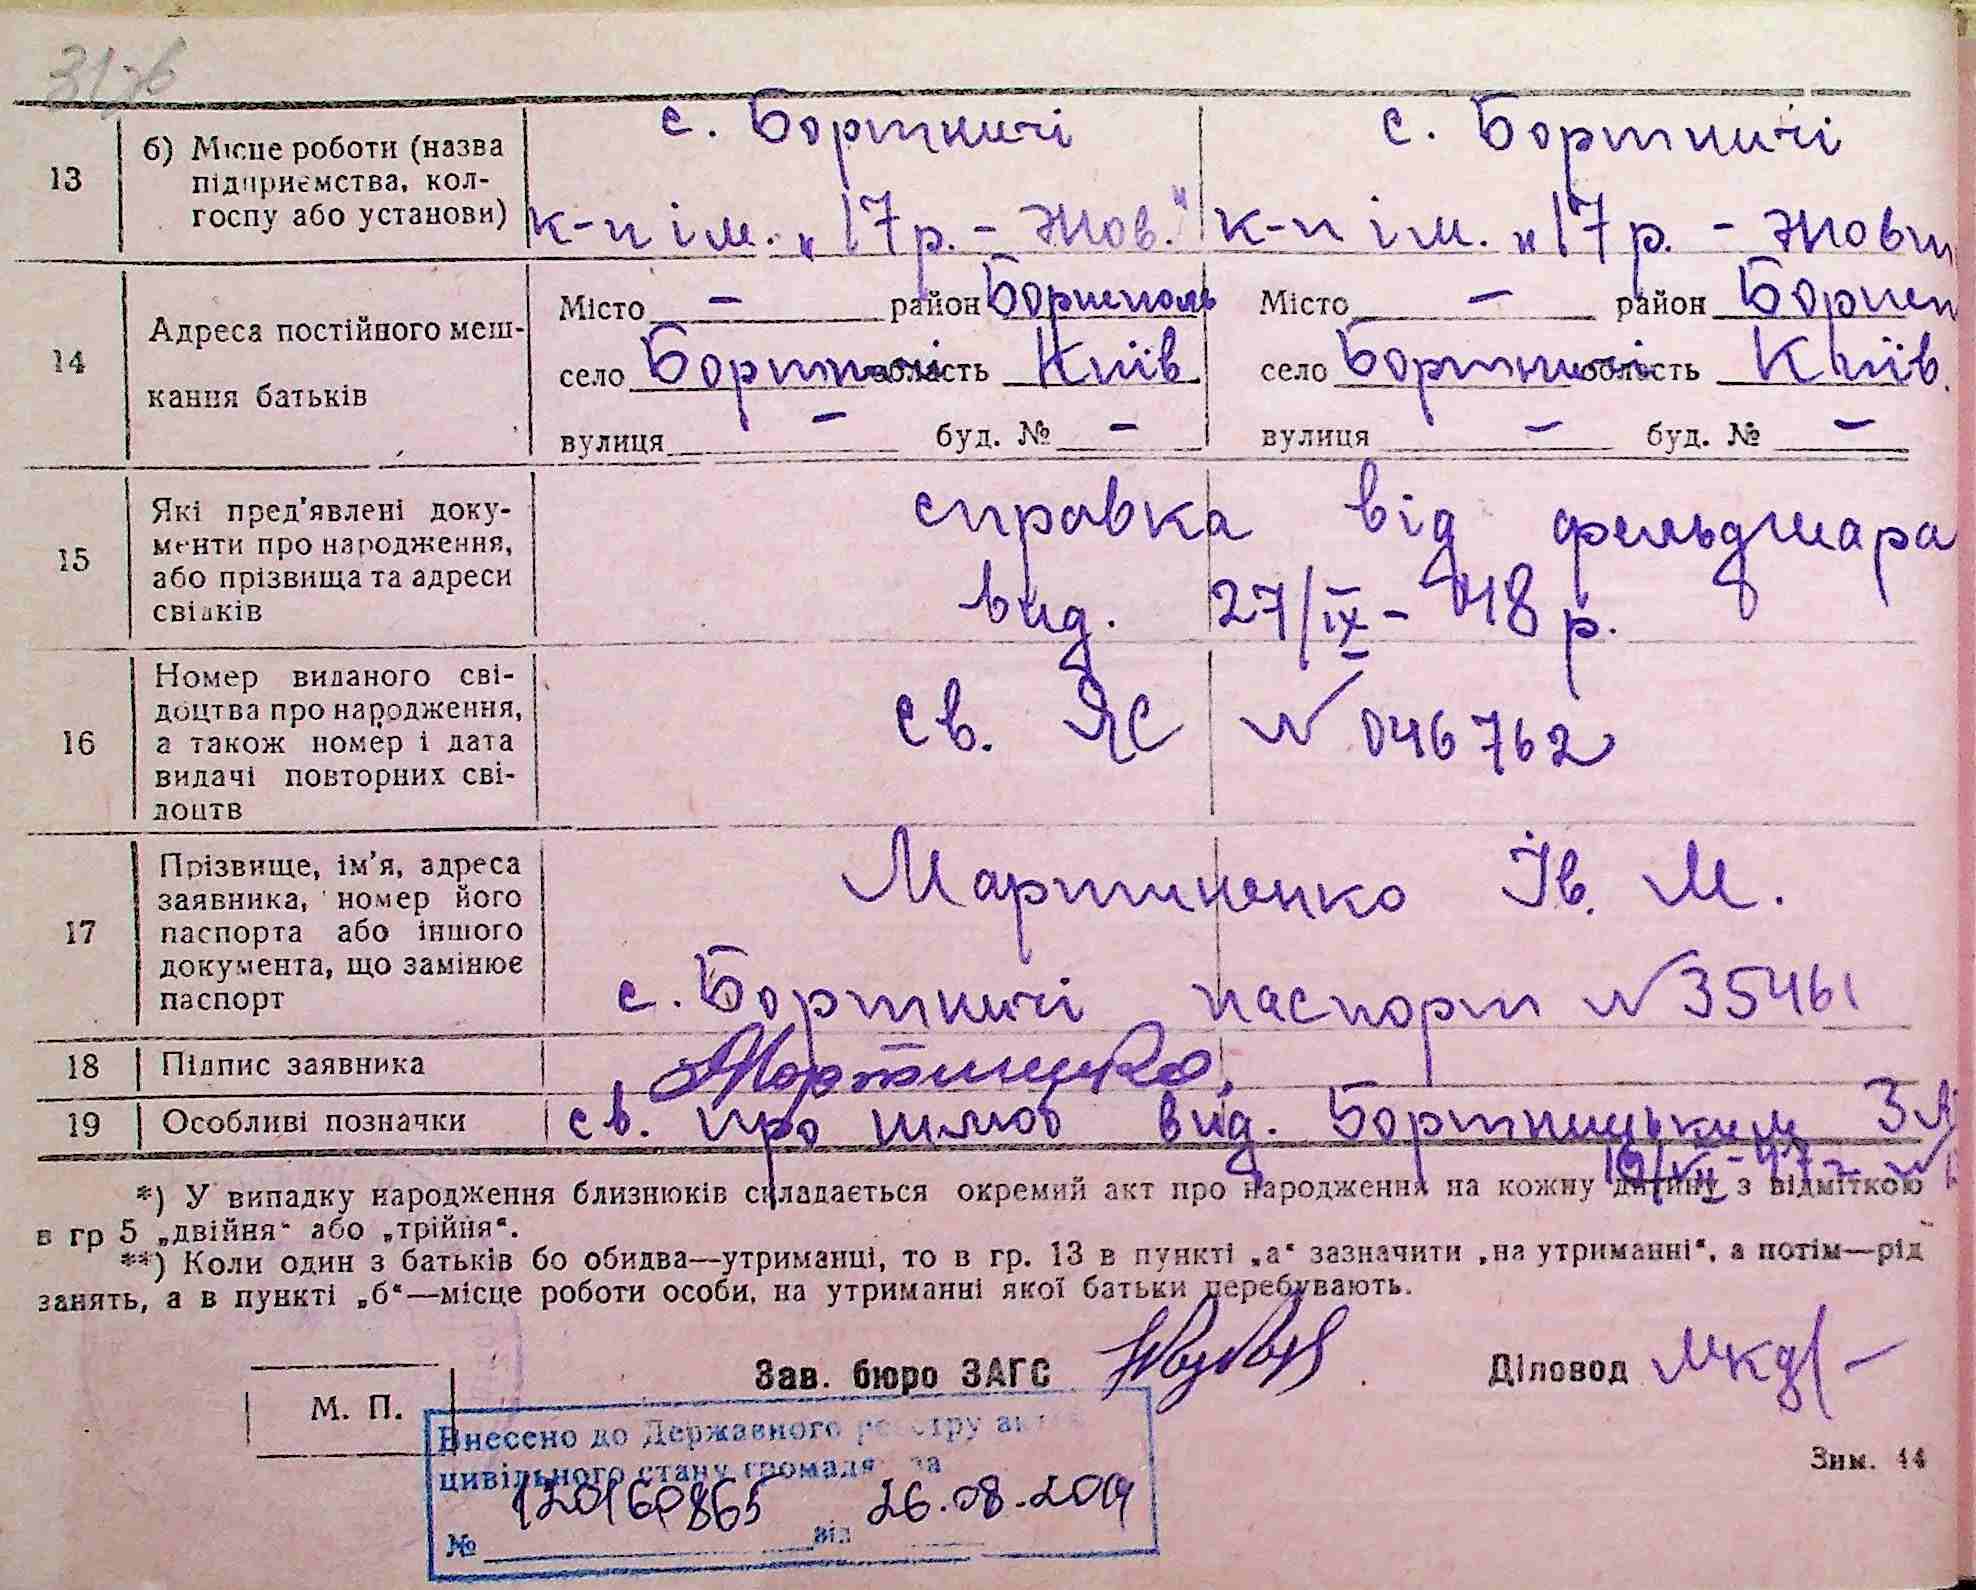 31зв
13 б) Місце роботи (назва підприємства, колгоспу або установи)
с. Бортничі с. Бортничі
к-п ім. „17 р. - Жов." к-п ім. „17 р. - Жовт
14 Адреса постійного мешкання батьків
Місто – район Борисполь Місто – район Борисп
село Бортничі область Київ село Бортничі область Київ.
вулиця – буд. № – вулиця – буд. № –
15 Які пред'явлені документи про народження, або прізвища та адреси свідків
справка від фельдшара
вид. 27/IX - 48 р.
16 Номер виданого свідоцтва про народження, а також номер і дата видачі повторних свідоцтв
св. ЯС № 046762
17 Прізвище, ім'я, адреса заявника, номер його паспорта або іншого документа, що замінює паспорт
Мартиненко Ів. М.
с. Бортничі паспорт № 35461
18 Підпис заявника Мартиненко
19 Особливі позначки св. про шлюб вид. Бортницьким
*) У випадку народження близнюків складається окремий акт про народження на кожну дитину з відміткою
в гр 5 „двійня" або „трійня".
**) Коли один з батьків бо обидва—утриманці, то в гр. 13 в пункті „а" зазначити „на утриманні", а потім—рід
занять, а в пункті „б"—місце роботи особи, на утриманні якої батьки перебувають.
Зав. бюро ЗАГС Діловод
М. П.
Внесено до Державного реєстру актів
цивільного стану громадян за
№ 120160865 від 26.08.2019
Зим. 44